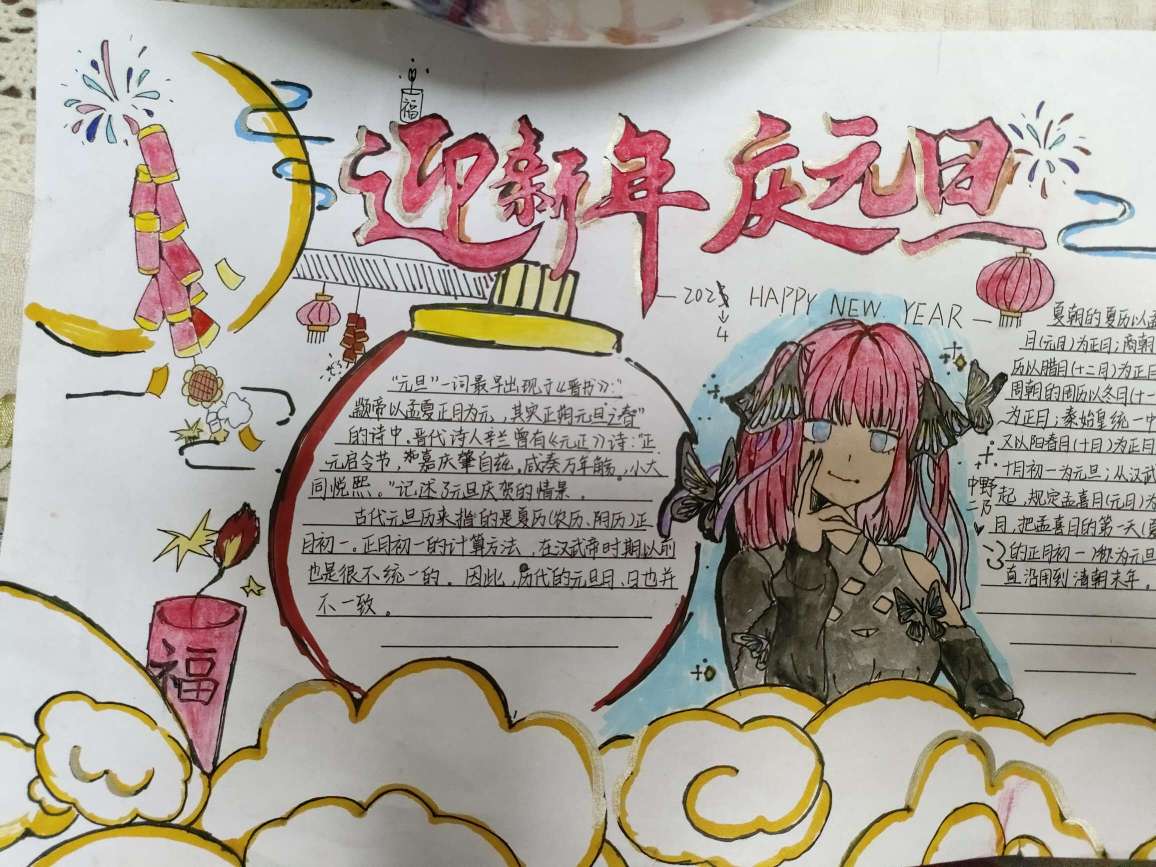 福
迎新年 庆元旦
2023
↓
4
HAPPY NEW YEAR
"元旦"一词最早出现于《晋书》:"
颛帝以孟夏正月为元,其实正朔元旦之春"
的诗中.晋代诗人辛兰曾有《元正》诗:"正
元启令节,嘉庆肇自兹,咸奏万年觞,小大
同悦熙。"记述了元旦庆贺的情景.
古代元旦历来指的是夏历(农历、阴历)正
月初一。正月初一的计算方法,在汉武帝时期以前
也是很不统一的.因此,历代的元旦月、日也并
不一致.
夏朝的夏历以孟
月(元月)为正月;商朝
历以腊月(十二月)为正月
周朝的周历以冬月(十一
为正月;秦始皇统一中
又以阳春月(十月)为正月
十月初一为元旦;从汉武
起,规定孟喜月(元月)为
月,把孟喜月的第一天(夏
的正月初一)称为元旦
直沿用到清朝末年.
中野
二乃
福